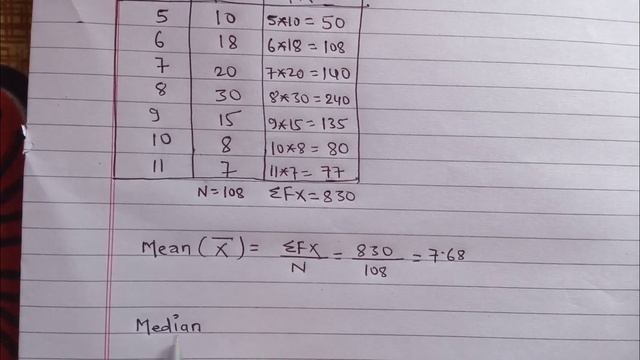 5 10 5*10 = 50
6 18 6*18 = 108
7 20 7*20 = 140
8 30 8*30 = 240
9 15 9*15 = 135
10 8 10*8 = 80
11 7 11*7 = 77
N = 108 ΣFX = 830
Mean (X̅) = ΣFX/N = 830/108 = 7.68
Median